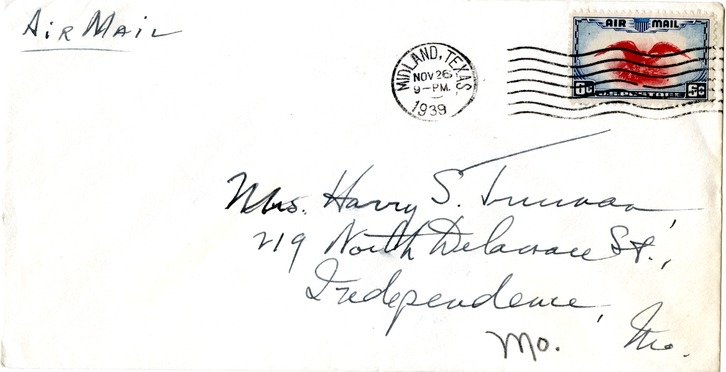 Air Mail
AIR MAIL
MIDLAND, TEXAS
NOV 26
9-PM.
1939
6¢ 6¢
Mrs. Harry S. Truman,
219 North Delaware St.,
Independence,
Mo. Mo.